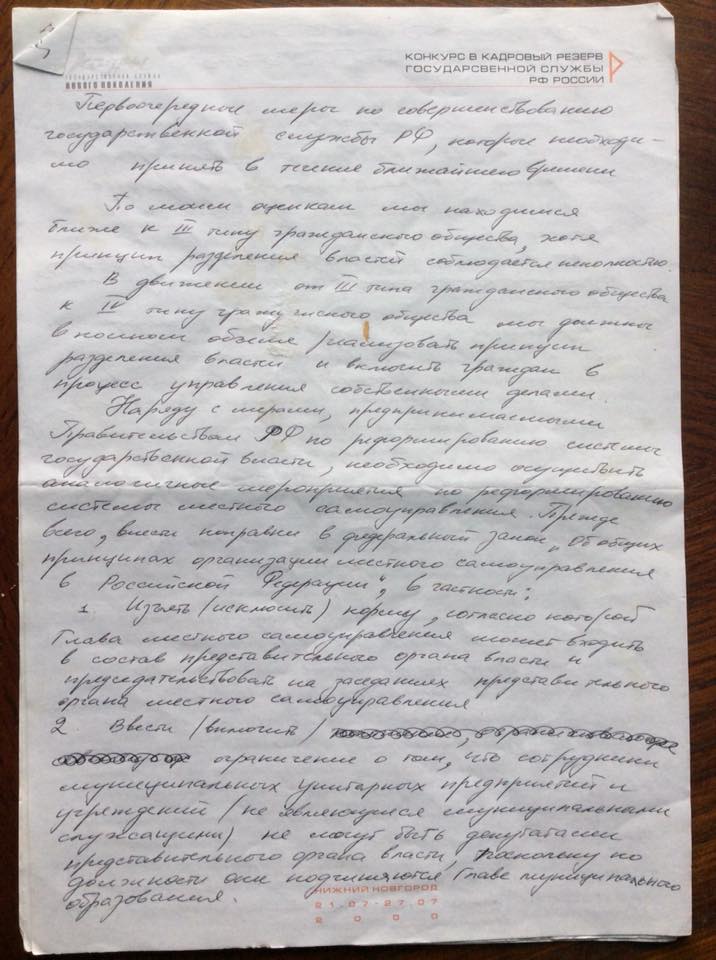 КОНКУРС В КАДРОВЫЙ РЕЗЕРВ
ГОСУДАРСВЕННОЙ СЛУЖБЫ
РФ РОССИИ
ГОСУДАРСТВЕННАЯ СЛУЖБА
НОВОГО ПОКОЛЕНИЯ
Первоочередные меры по совершенствованию
государственной службы РФ, которые необходи-
мо принять в течение ближайшего времени
По моим оценкам мы находимся
ближе к III типу гражданского общества, хотя
принцип разделения властей соблюдается неполностью.
В движении от III типа гражданского общества
к IV типу гражданского общества мы должны
в полном объеме реализовать принцип
разделения власти и включить граждан в
процесс управления собственными делами.
Наряду с мерами, предпринимаемыми
Правительством РФ по реформированию системы
государственной власти, необходимо осуществить
аналогичные мероприятия по реформированию
системы местного самоуправления. Прежде
всего, внести поправки в федеральный закон „Об общих
принципах организации местного самоуправления
в Российской Федерации", в частности:
1. Изъять (исключить) норму, согласно которой
Глава местного самоуправления может входить
в состав представительного органа власти и
председательствовать на заседаниях представительного
органа местного самоуправления
2 Ввести (включить)
ограничение о том, что сотрудники
муниципальных унитарных предприятий и
учреждений (не являющиеся муниципальными
служащими) не могут быть депутатами
представительного органа власти, поскольку по
должности они подчиняются Главе муниципального
образования.
НИЖНИЙ НОВГОРОД
21.07-27.07
2 0 0 0